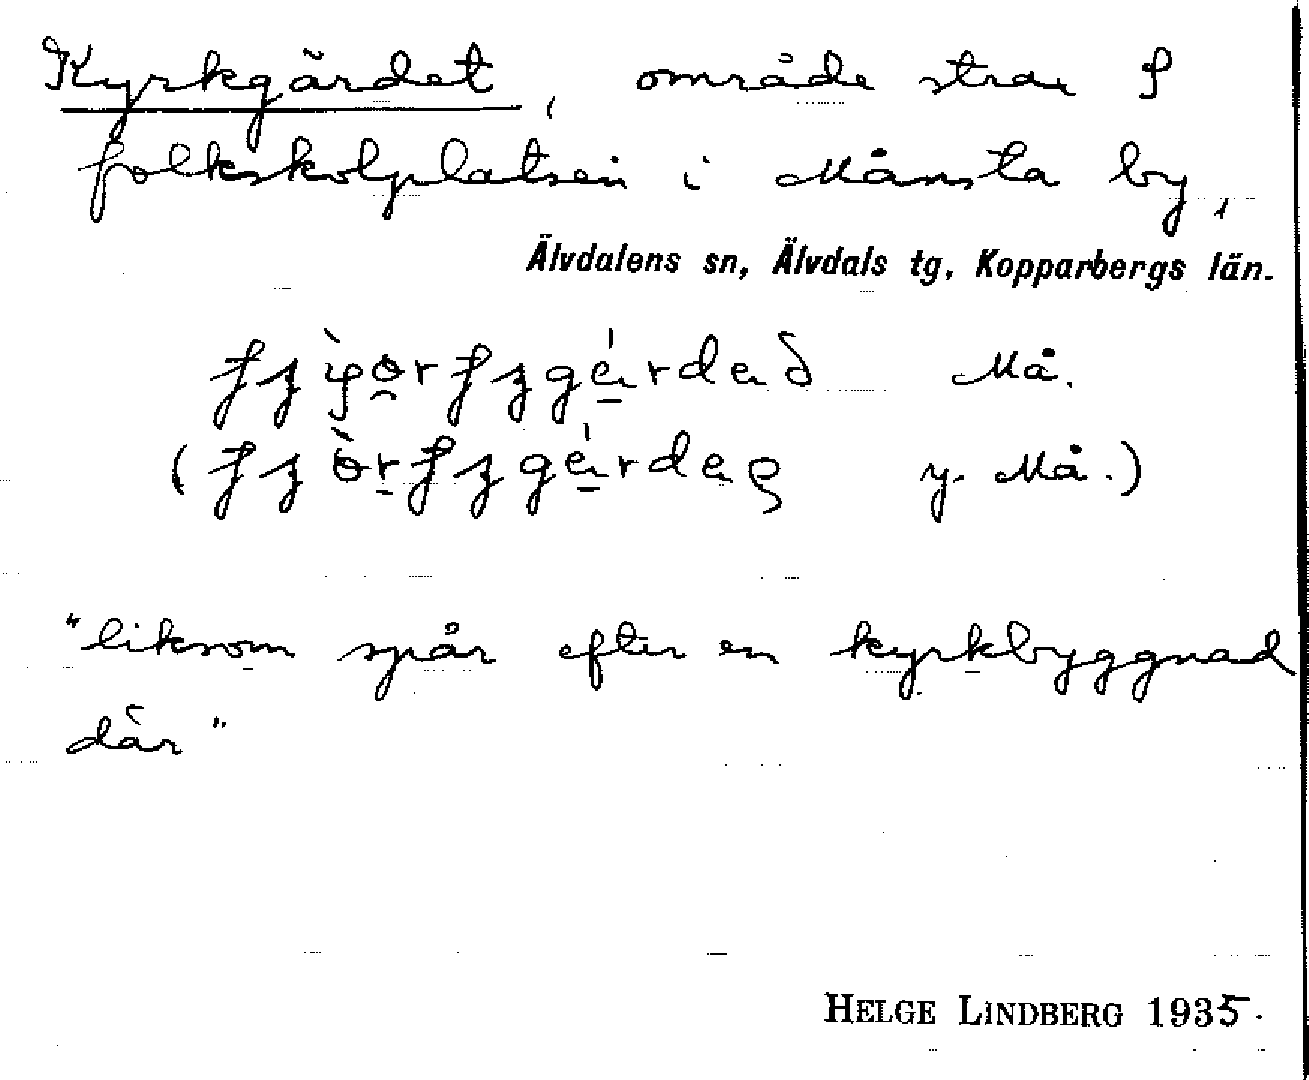 Kyrkgärdet, område strax S
folkskolplatsen i Månsta by,
Älvdalens sn, Älvdals tg, Kopparbergs län.
Må.
( y. Må.)
"liksom spår efter en kyrkbyggnad
där"
HELGE LINDBERG 1935.